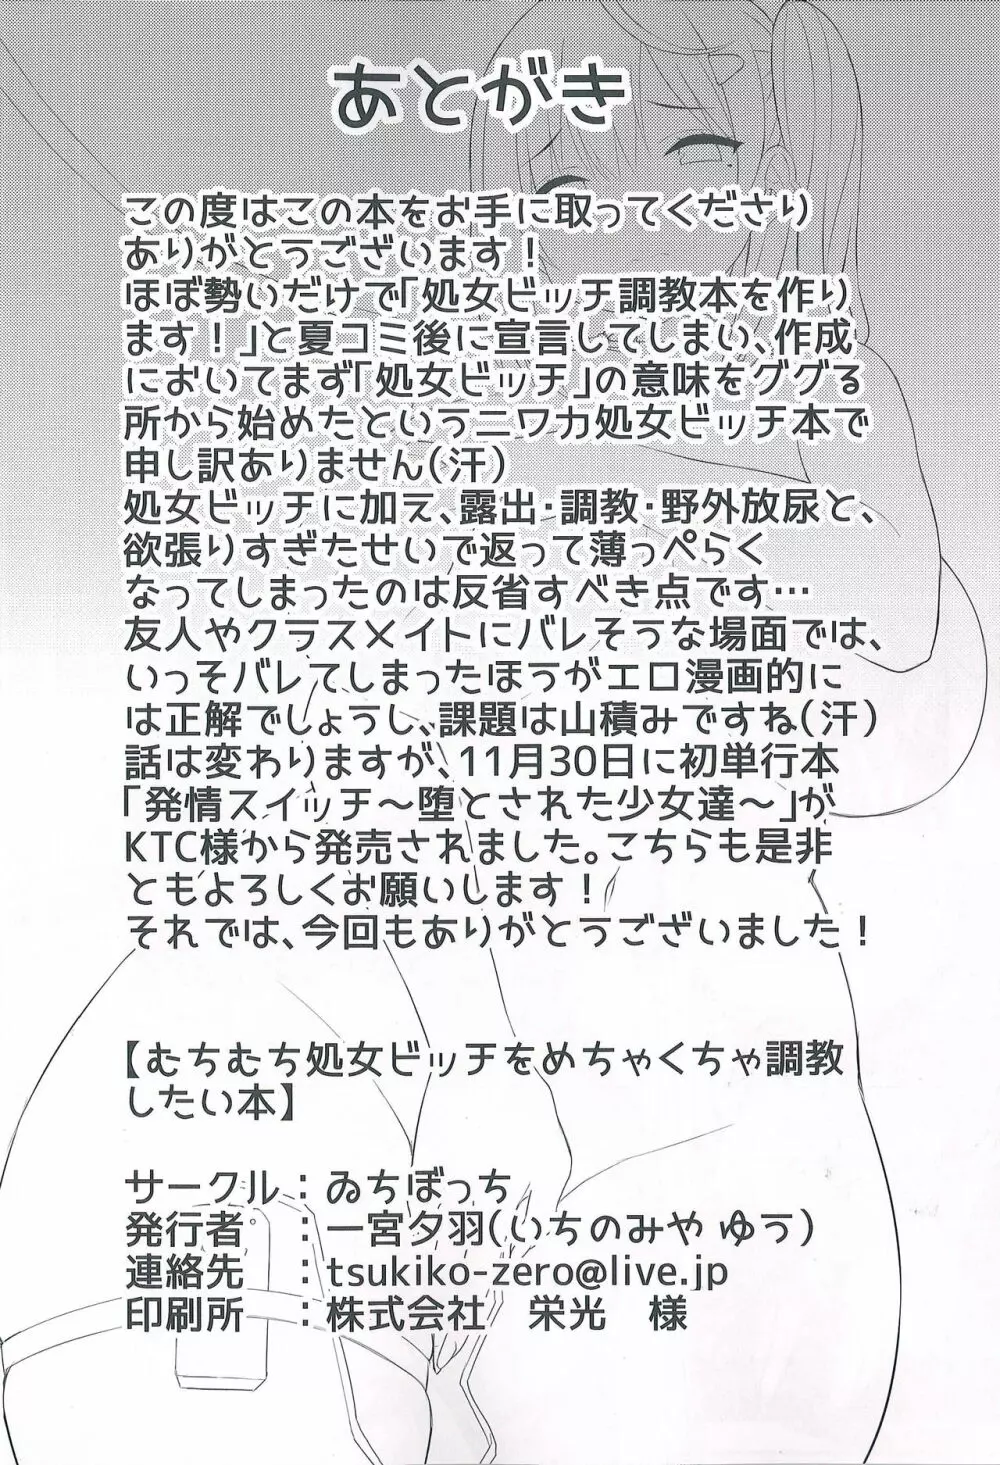 あとがき
この度はこの本をお手に取ってくださり
ありがとうございます！
ほぼ勢いだけで「処女ビッチ調教本を作り
ます！」と夏コミ後に宣言してしまい、作成
においてまず「処女ビッチ」の意味をググる
所から始めたというニワカ処女ビッチ本で
申し訳ありません(汗)
処女ビッチに加え、露出・調教・野外放尿と、
欲張りすぎたせいで返って薄っぺらく
なってしまったのは反省すべき点です…
友人やクラスメイトにバレそうな場面では、
いっそバレてしまったほうがエロ漫画的に
は正解でしょうし、課題は山積みですね(汗)
話は変わりますが、11月30日に初単行本
「発情スイッチ～堕とされた少女達～」が
KTC様から発売されました。こちらも是非
ともよろしくお願いします！
それでは、今回もありがとうございました！
【むちむち処女ビッチをめちゃくちゃ調教
したい本】
サークル：ゐちぼっち
発行者　：一宮夕羽(いちのみや ゆう)
連絡先　：tsukiko-zero@live.jp
印刷所　：株式会社　栄光　様